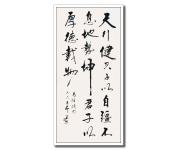 天行健君子以自强不
息地势坤君子以
厚德载物